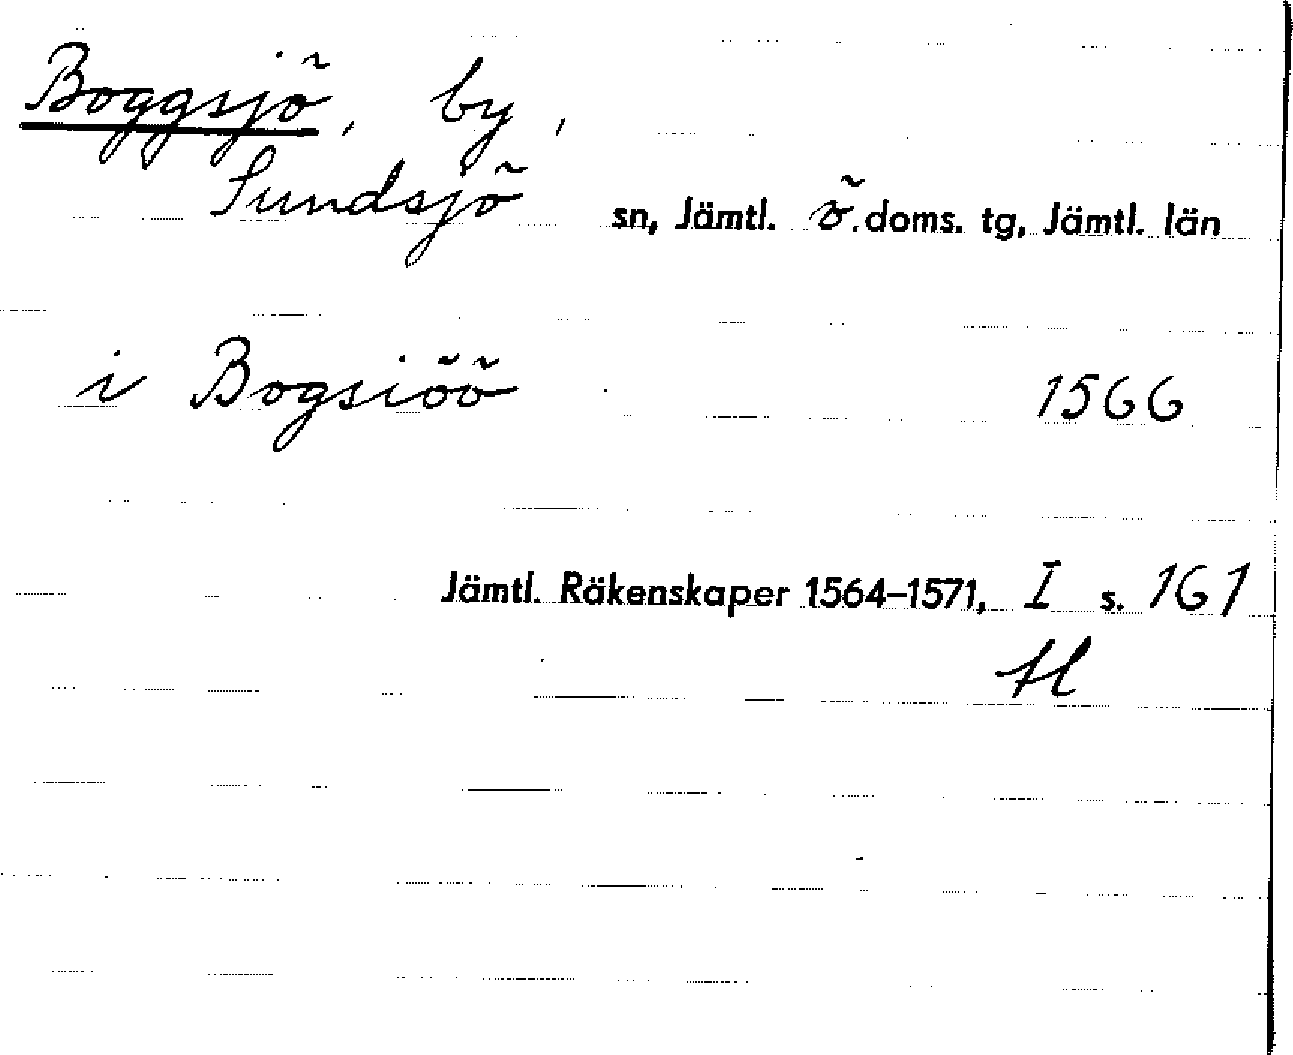 Boggsjö, by,
Sundsjö sn, Jämtl. ö. doms. tg, Jämtl. län
i Bogsiöö 1566
Jämtl. Räkenskaper 1564–1571, I s. 161